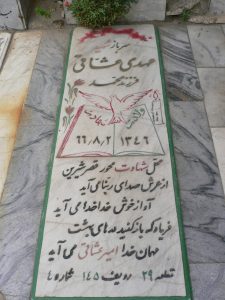 سرباز شهید
مهدی عشاقی
فرزند محمد
ولادت شهادت
۱۳۴۶ ۶۶/۸/۲
محل شهادت محور قصر شیرین
از عرش صدای ربنا می آید
آواز خوش خدا خدا می آید
فریاد که باز کنید درهای بهشت
مهمان خدا امیر عشاقی می آید
قطعه ۲۹ ردیف ۱۴۵ شماره ۴